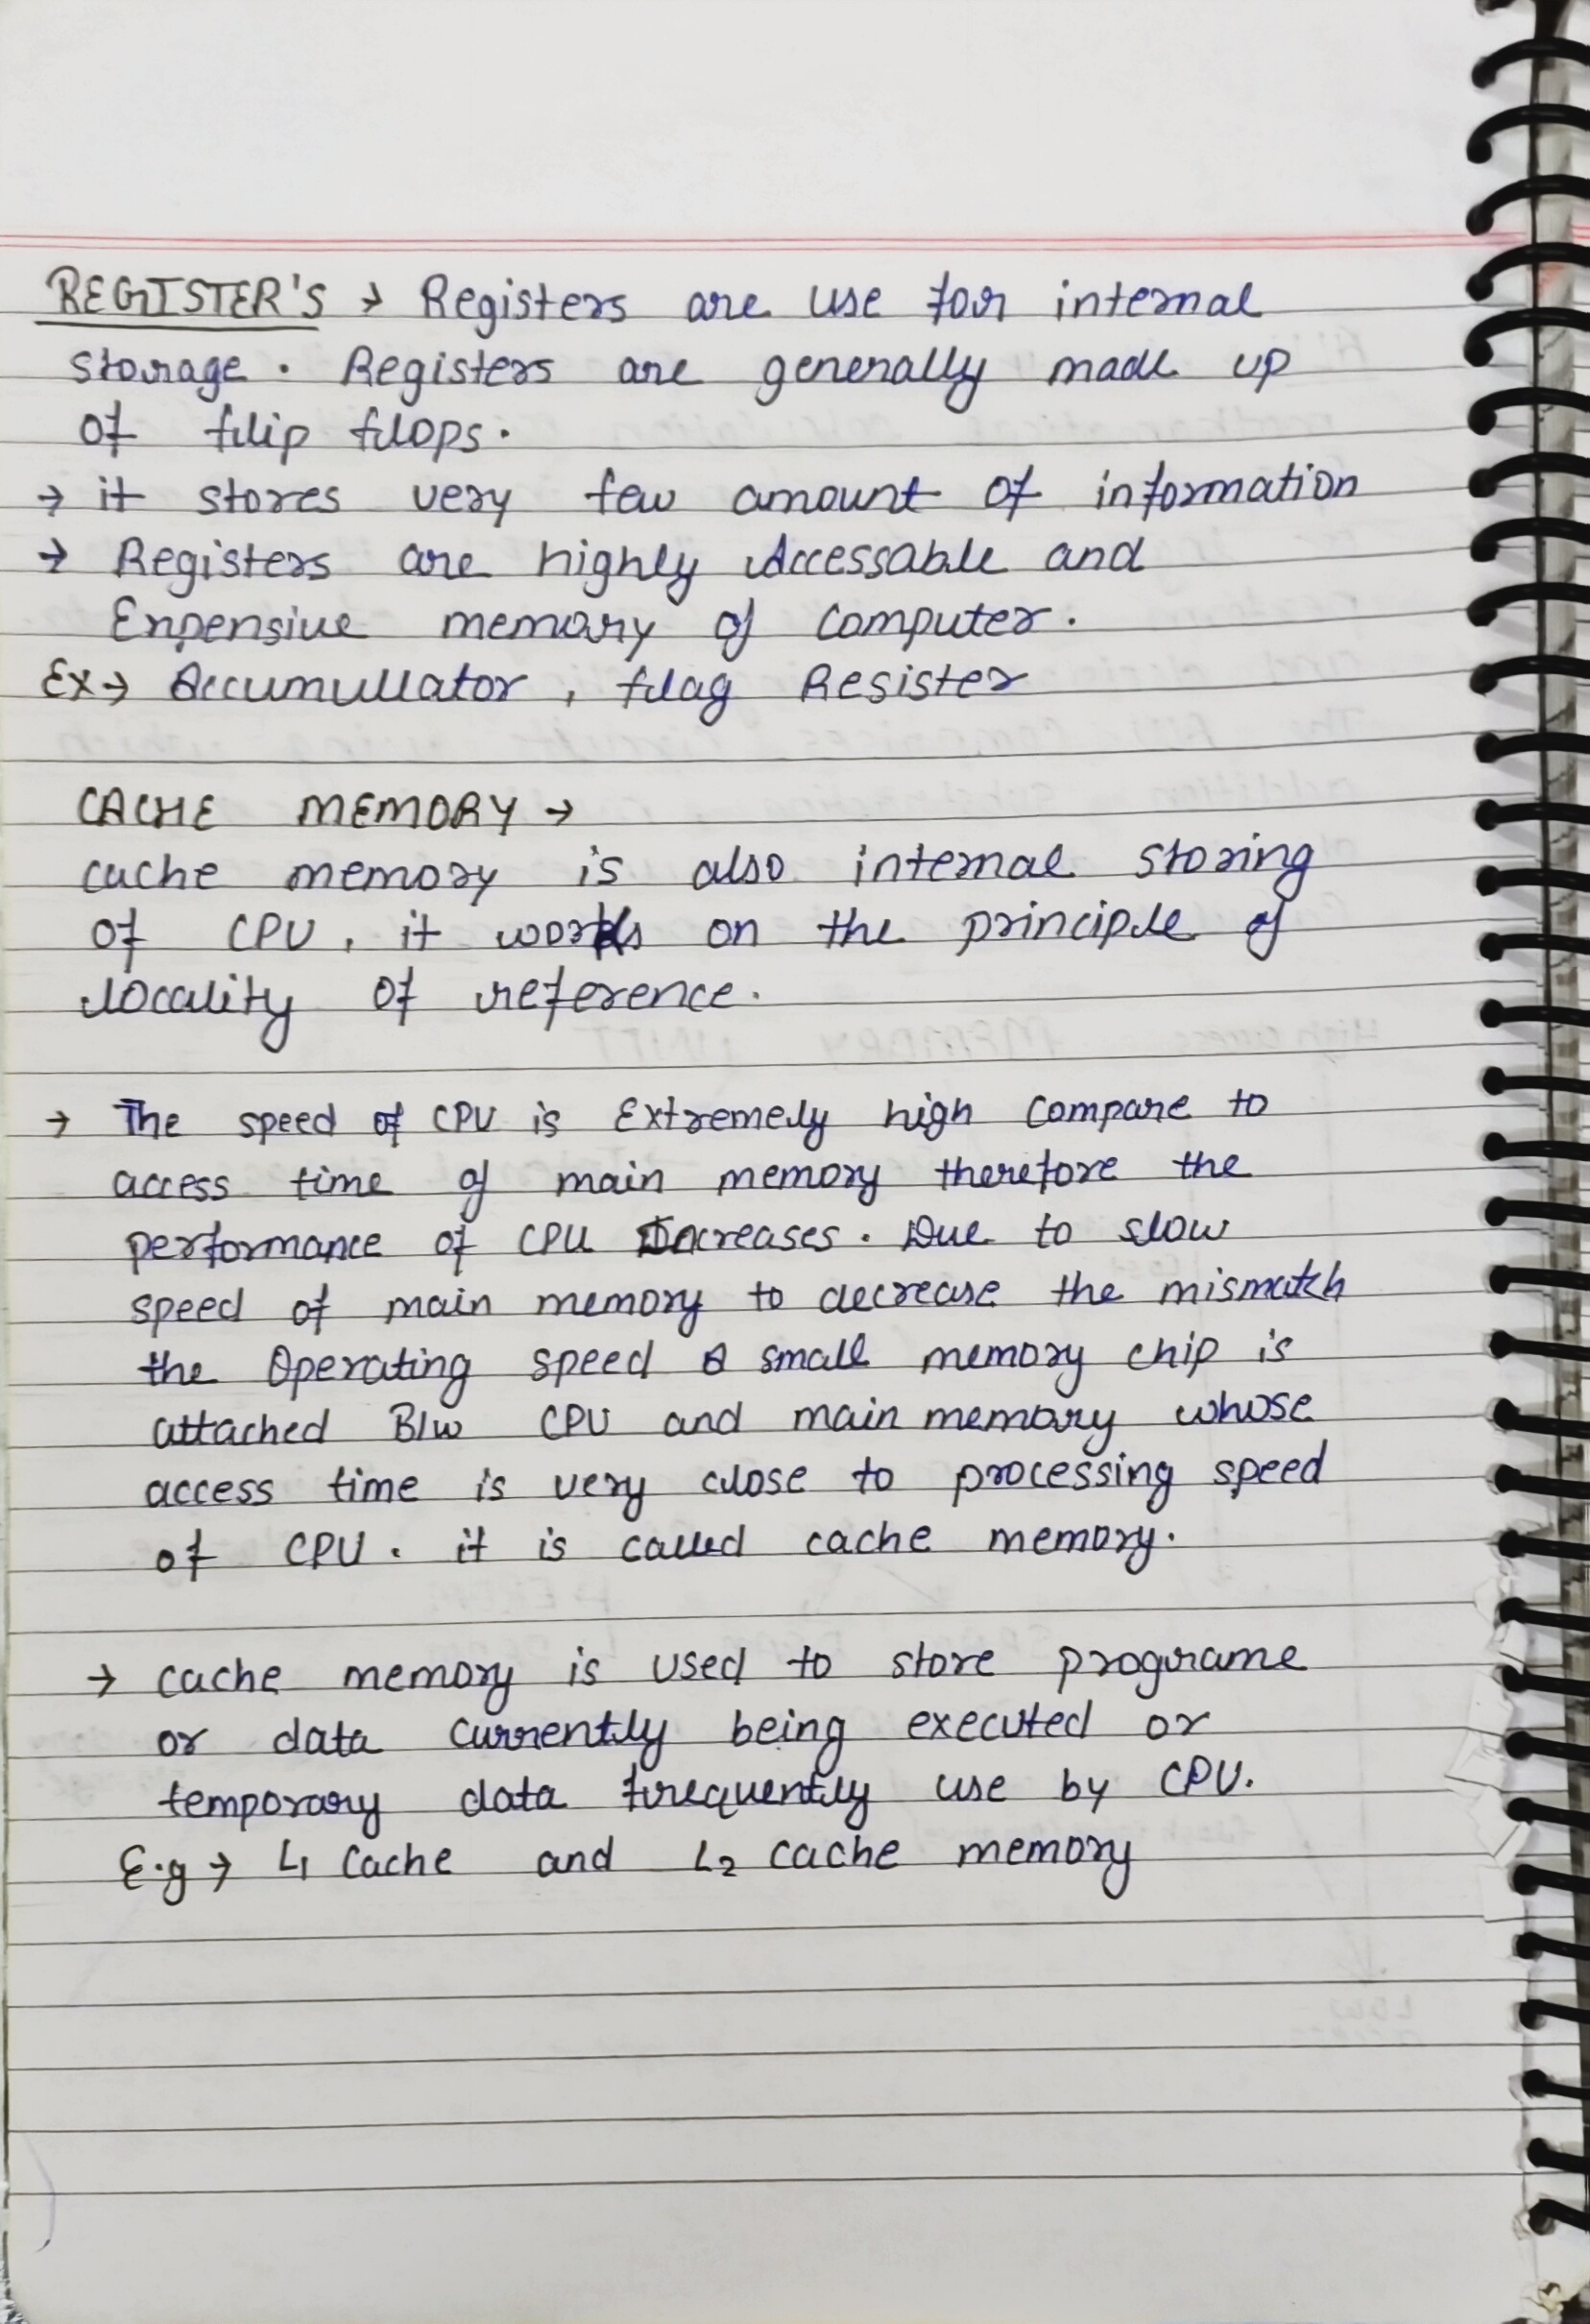 REGISTER'S → Registers are use for internal
storage. Registers are generally made up
of flip flops.
→ it stores very few amount of information
→ Registers are highly Accessable and
Expensive memory of computer.
Ex → Accumullator, flag Resister
CACHE MEMORY →
cache memory is also internal storing
of CPU, it works on the principle of
locality of reference.
→ The speed of CPU is Extremely high compare to
access time of main memory therefore the
performance of CPU Increases. Due to slow
speed of main memory to decrease the mismatch
the Operating speed A small memory chip is
attached B/w CPU and main memory whose
access time is very close to processing speed
of CPU. it is called cache memory.
→ cache memory is used to store programe
or data currently being executed or
temporary data frequently use by CPU.
E.g → L1 Cache and L2 cache memory